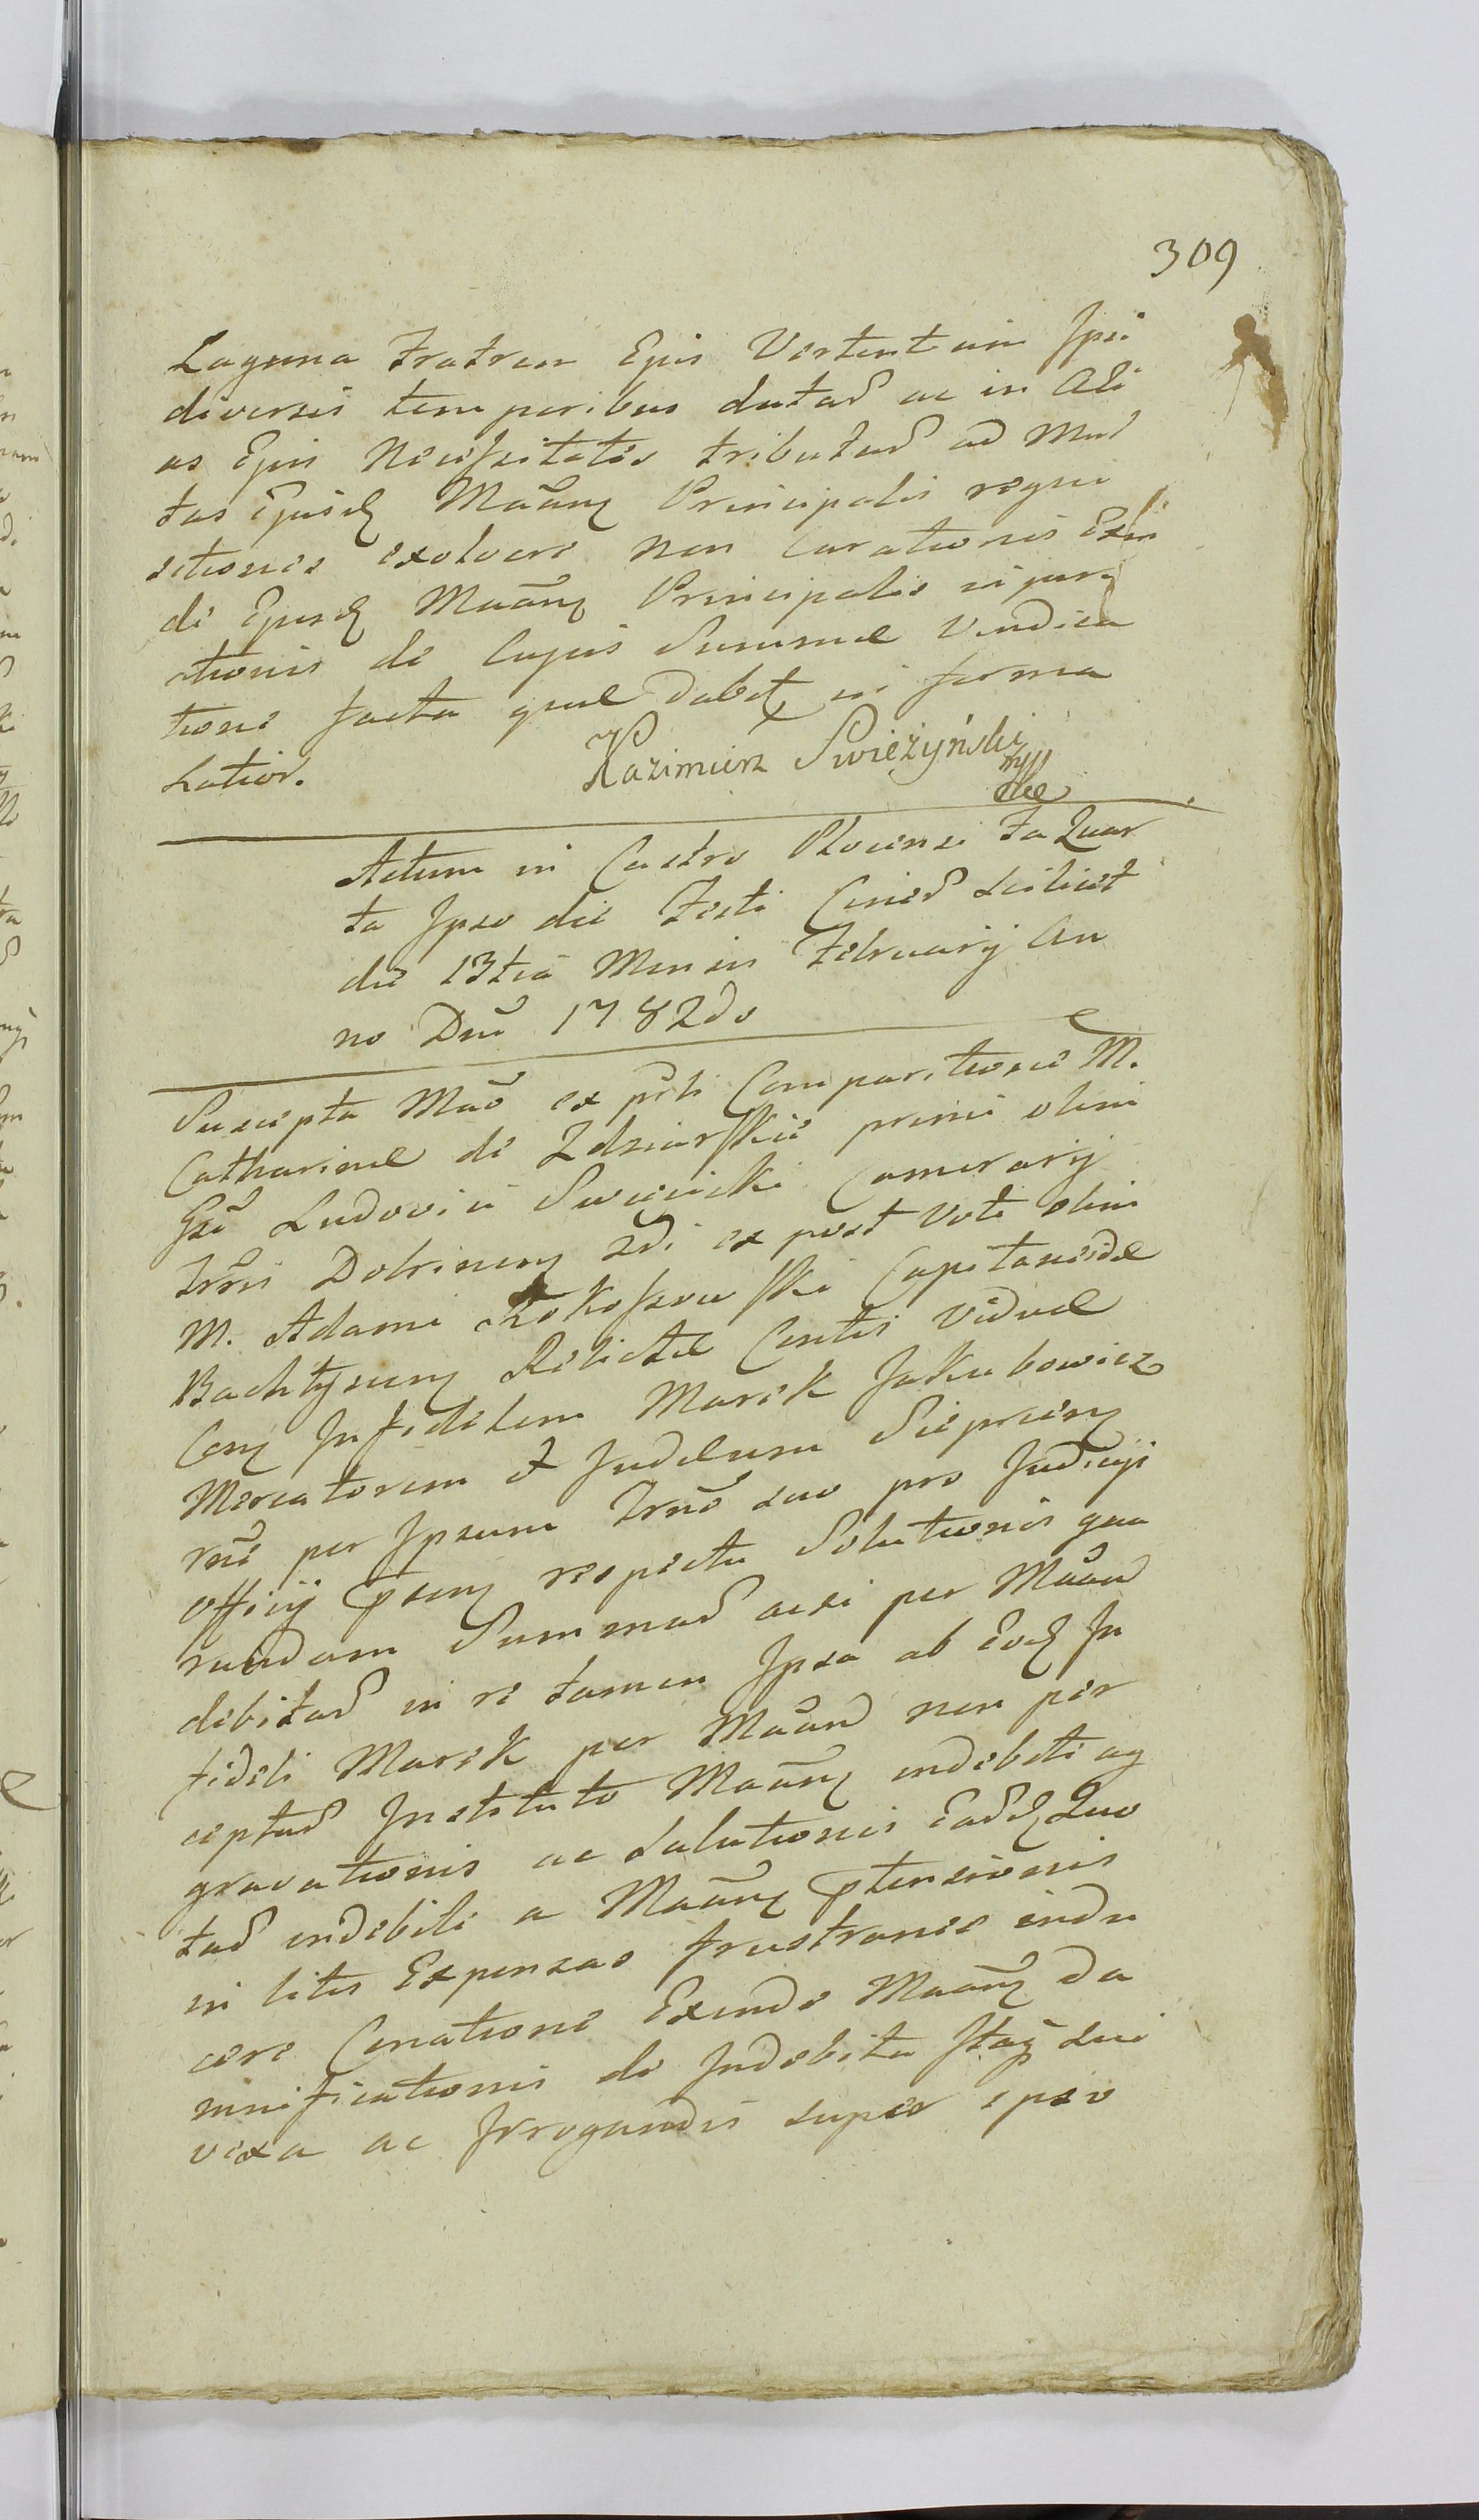 309
Laguna Fratrem Ejus Vertentem Ipsi
diversis temporibus datas ac in Ali
as Ejus Necessitates tributas ad Mul
tas Ejusd Maān Principalis requi
sitiones exolvere non Curationis Exin
de Ejusd Maāng Principalis injura
tionis de Cujus Summae Vendica
tione facta quae dabt in forma
Latior.
Kazimierz Swieżyński
Actum in Castro Plocensi Fa Quar
ta Ipso die Festi Cined scilicet
die 13tia Mensis Februarij An
no Dni 1782do
Suscepta Mās ex pсti Comparitione M.
Catharinae de Zdziarskie primi olim
Gsi Ludovici Swięcicki Camerarij
Trris Dobrinen 2di ex post Voti olim
M. Adami Kokoszowski Capitaneidae
Bachtynen Relictae Consortis Viduae
Con Infidelem Marek Jakubowicz
Mercatorem et Judaeum Sieprcen
rne per Ipsum Trno suo pro Judicij
officij psen respectu Solutionis qua
rundam Summas acsi per Māand
debitas in re tamen Ipsa ab Eod In
fideli Marek per Māand non per
ceptas Instituto Māang indebite ag
gravationis ac Salutionis Easd Quo
tas indebite a Māang ptensionis
in litis Expensas frustranee indu
cere Conatione Exinde Māang Da
mnificationis de Indebita Itaq sui
vexa ac Irrogandis super ipso